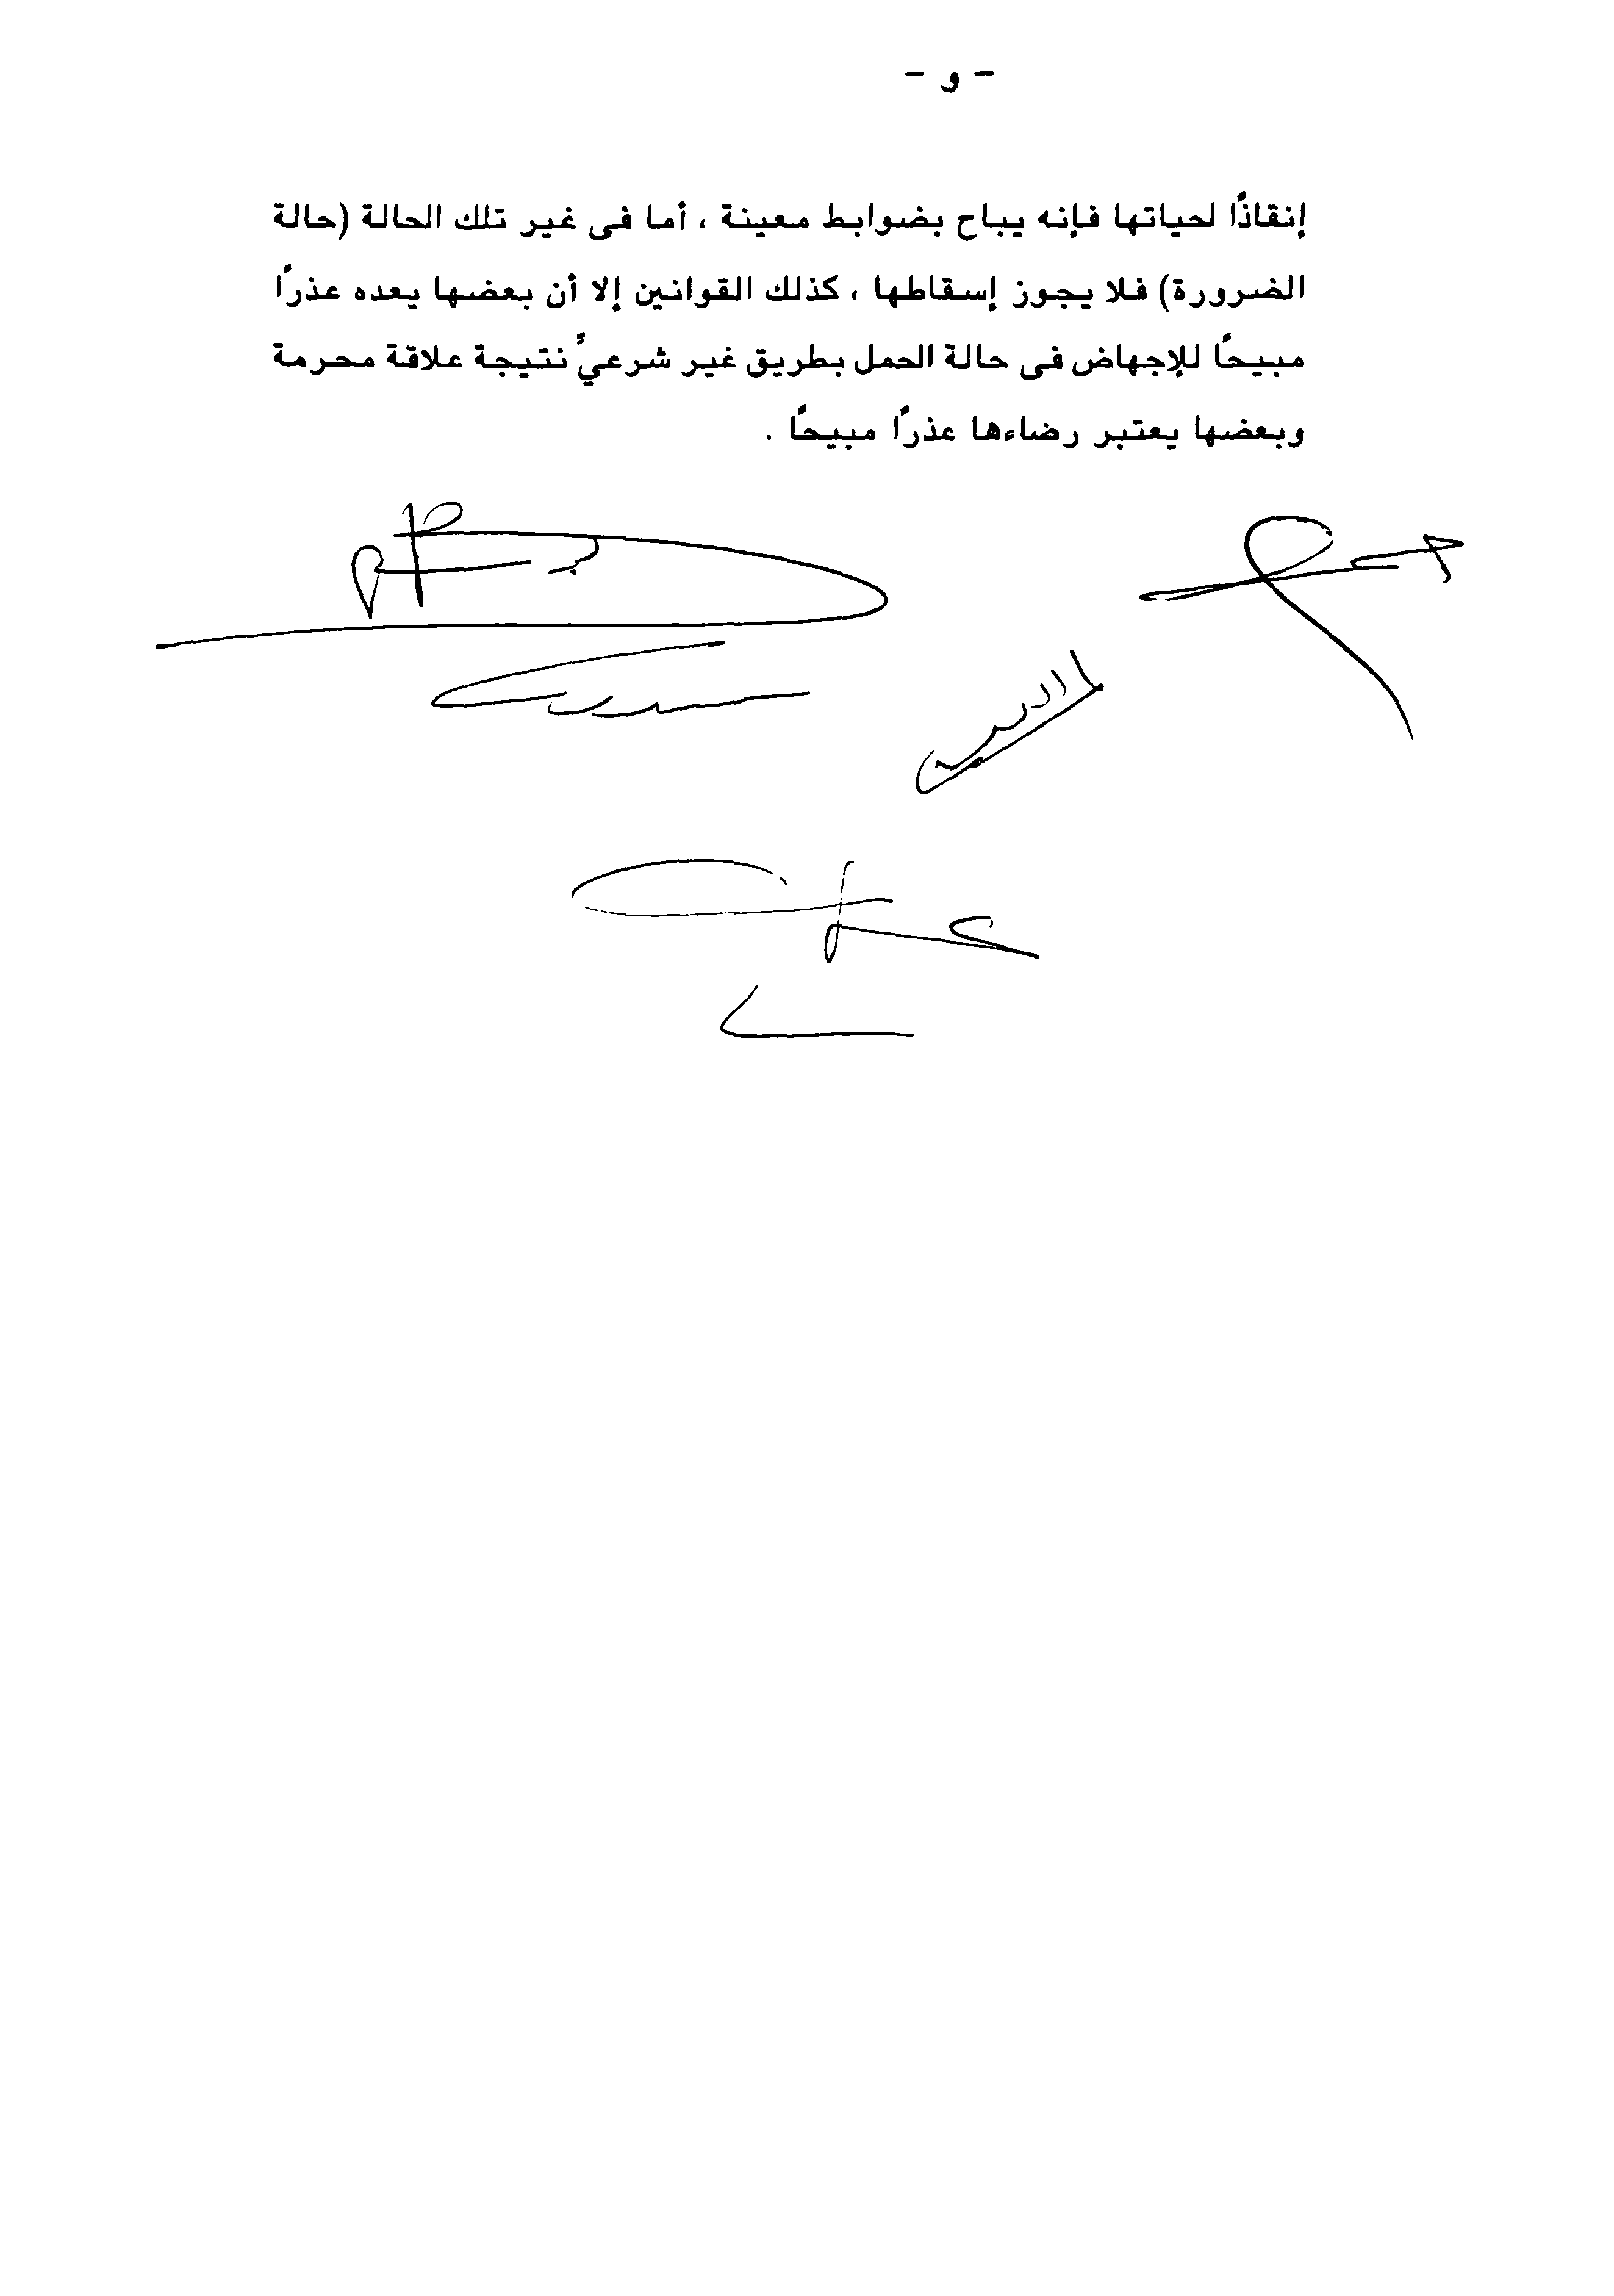 - و -
إنقاذًا لحياتها فإنه يباح بضوابط معينة ، أما فى غير تلك الحالة (حالة
الضرورة) فلا يجوز إسقاطها ، كذلك القوانين إلا أن بعضها يعده عذرًا
مبيحًا للإجهاض فى حالة الحمل بطريق غير شرعيًّ نتيجة علاقة محرمة
وبعضها يعتبر رضاءها عذرًا مبيحًا .